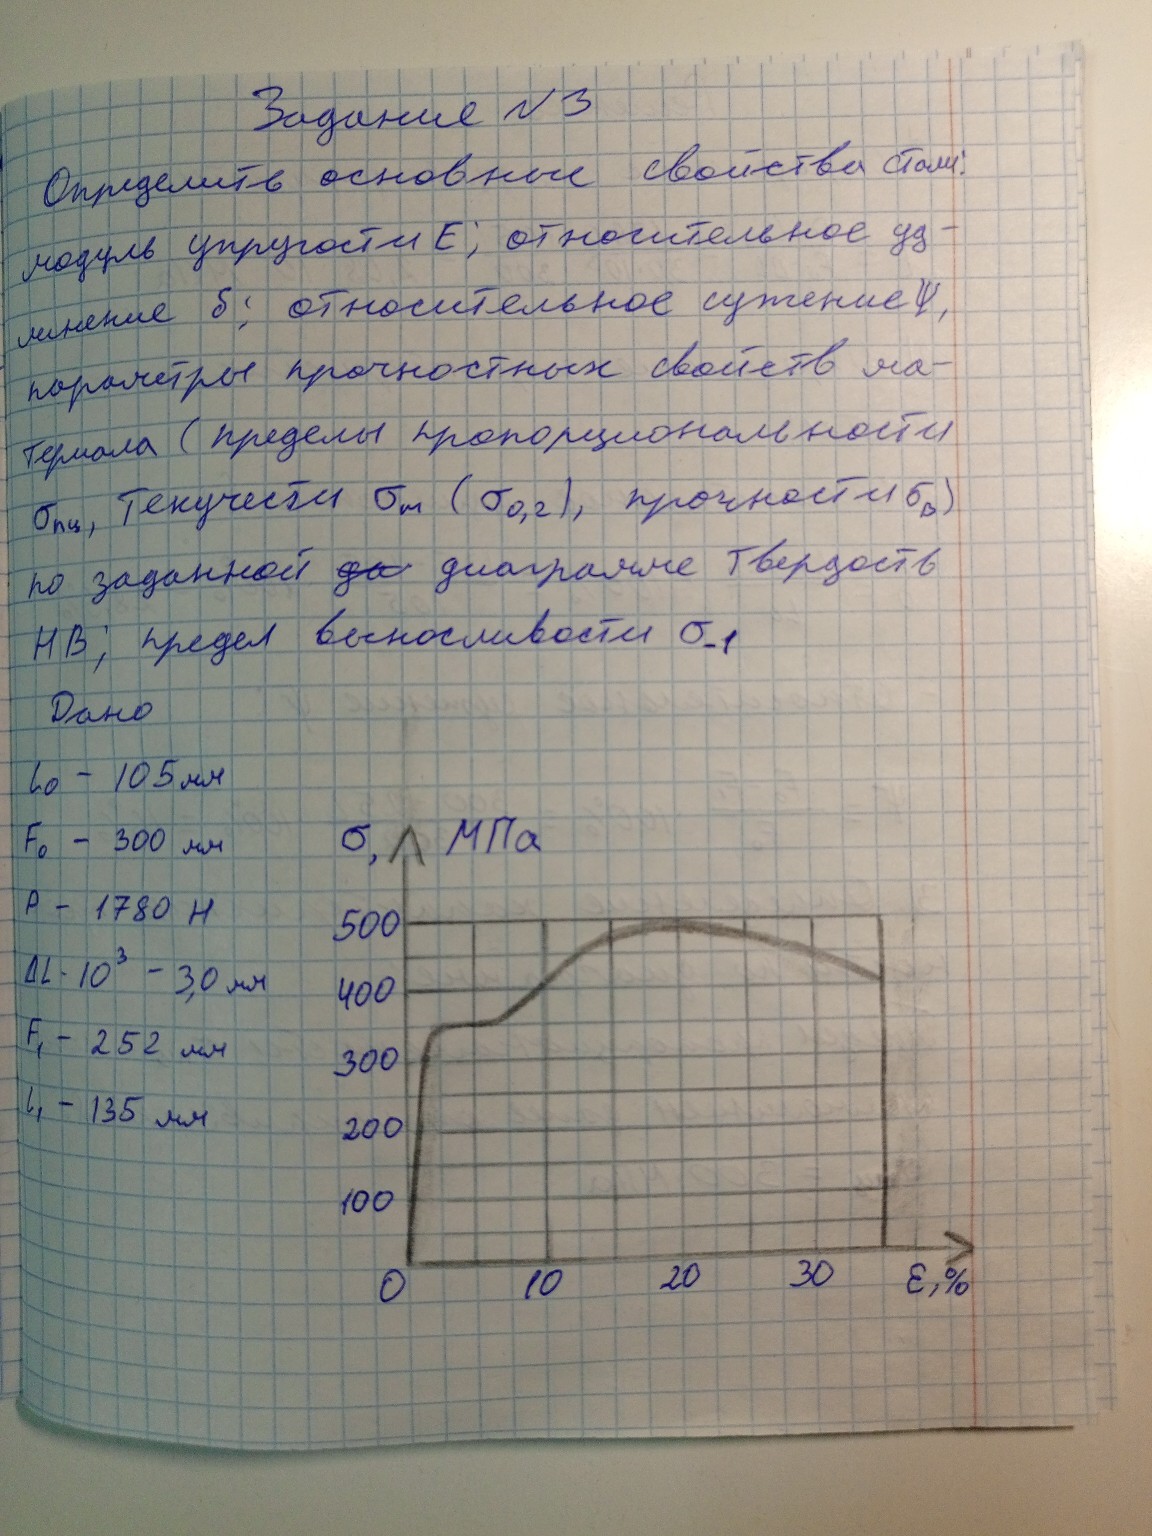 Задание №3
Определить основные свойства стали:
модуль упругости E; относительное уд-
линение δ; относительное сужение ψ,
параметры прочностных свойств ма-
териала (пределы пропорциональности
σпц, текучести σт (σ0,2), прочности σв)
по заданной диаграмме твердость
HB; предел выносливости σ-1
Дано
L0 - 105 мм
F0 - 300 мм
P - 1780 Н
ΔL·10³ - 3,0 мм
F1 - 252 мм
L1 - 135 мм
σ, МПа
500
400
300
200
100
0 10 20 30 ε,%